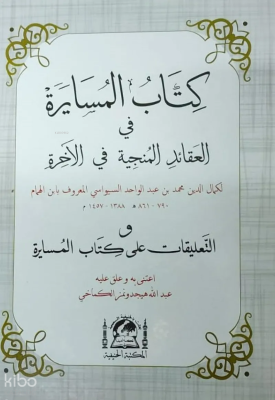 كِتَابُ المُسَايَرَة
في
العقائد المنجية في الآخرة
لكمال الدين محمد بن عبد الواحد السيواسي المعروف بابن الهمام
٧٩٠ - ٨٦١ ه ١٣٨٨ - ١٤٥٧ م
و
التعليقات على كتاب المسايرة
اعتنى به و علق عليه
عبد الله هيجدونمز الكماخي
المكتبة الحنيفية
kibo